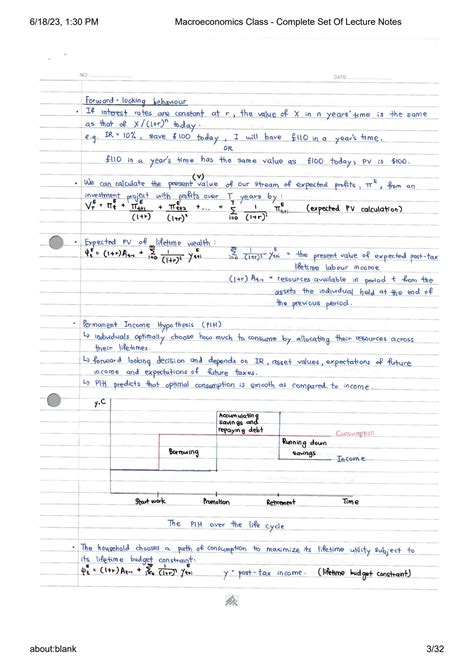 6/18/23, 1:30 PM Macroeconomics Class - Complete Set Of Lecture Notes
NO. DATE
Forward-looking behaviour
• If interest rates are constant at r, the value of X in n years' time is the same
as that of X/(1+r)ⁿ today.
e.g. IR = 10%, save £100 today, I will have £110 in a year's time.
OR
£110 in a year's time has the same value as £100 today, PV is £100.
(V)
• We can calculate the present value of our stream of expected profits, πᴱ, from an
investment project with profits over T years by:
(expected PV calculation)
• Expected PV of lifetime wealth:
= the present value of expected post-tax
lifetime labour income
(1+r) Aₜ₋₁ = resources available in period t from the
assets the individual held at the end of
the previous period.
• Permanent Income Hypothesis (PIH)
↳ individuals optimally choose how much to consume by allocating their resources across
their lifetimes.
↳ forward looking decision and depends on IR, asset values, expectations of future
income and expectations of future taxes.
↳ PIH predicts that optimal consumption is smooth as compared to income.
y,C
Accumulating
savings and
repaying debt
Consumption
Borrowing
Running down
savings
Income
Start work Promotion Retirement Time
The PIH over the life cycle
• The household chooses a path of consumption to maximize its lifetime utility subject to
its lifetime budget constraint:
y = post-tax income. (lifetime budget constraint)
about:blank 3/32